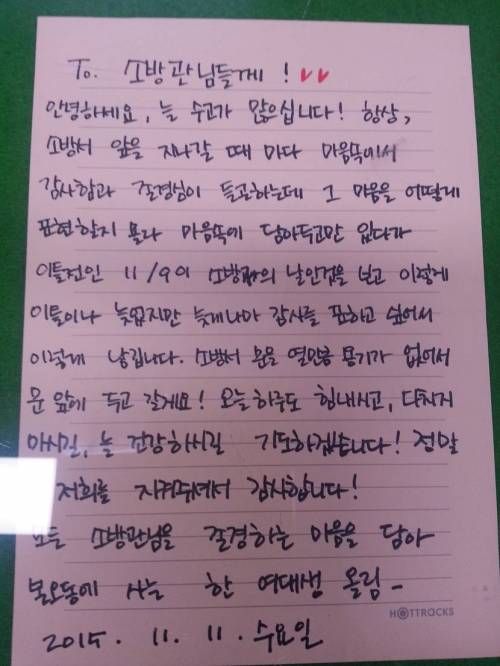 To. 소방관님들께 ! ♥♥
안녕하세요, 늘 수고가 많으십니다! 항상,
소방서 앞을 지나갈 때 마다 마음속에서
감사함과 존경심이 들곤하는데 그 마음을 어떻게
표현할지 몰라 마음속에 담아두고만 있다가
이틀전인 11/9이 소방관의 날인것을 보고 이렇게
이틀이나 늦었지만 늦게나마 감사를 표하고 싶어서
이렇게 남깁니다. 소방서 문을 열만한 용기가 없어서
문 앞에 두고 갈게요! 오늘 하루도 힘내시고, 다치지
마시길, 늘 건강하시길 기도하겠습니다! 정말
저희를 지켜주셔서 감사합니다!
모든 소방관님을 존경하는 마음을 담아
불로동에 사는 한 여대생 올림-
HOTTRACKS
2015. 11. 11. 수요일